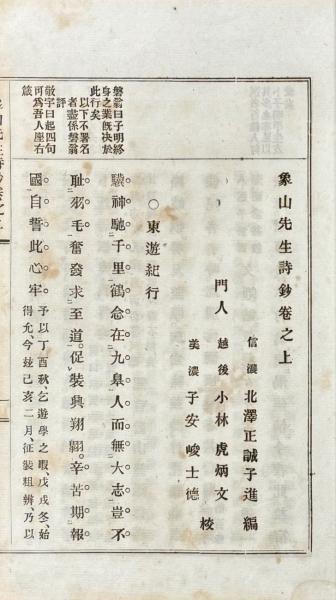 象山先生詩鈔卷之上
信濃 北澤正誠子進 編
門人 越後 小林虎炳文
美濃 子安峻士德 校
○東遊紀行
驥神馳千里鶴念在九皐人而無大志豈不
耻羽毛奮發求至道促裝興翔翺辛苦期報
國自誓此心牢 予以丁酉秋、乞遊學之暇、戊戌冬、始
得允、今玆己亥二月、征裝粗辨、乃以
磐翁曰子明終
身之業旣決於
此行矣
以下不署名
者盡係磐翁
評
敬宇曰起四句
可爲吾人座右
箴